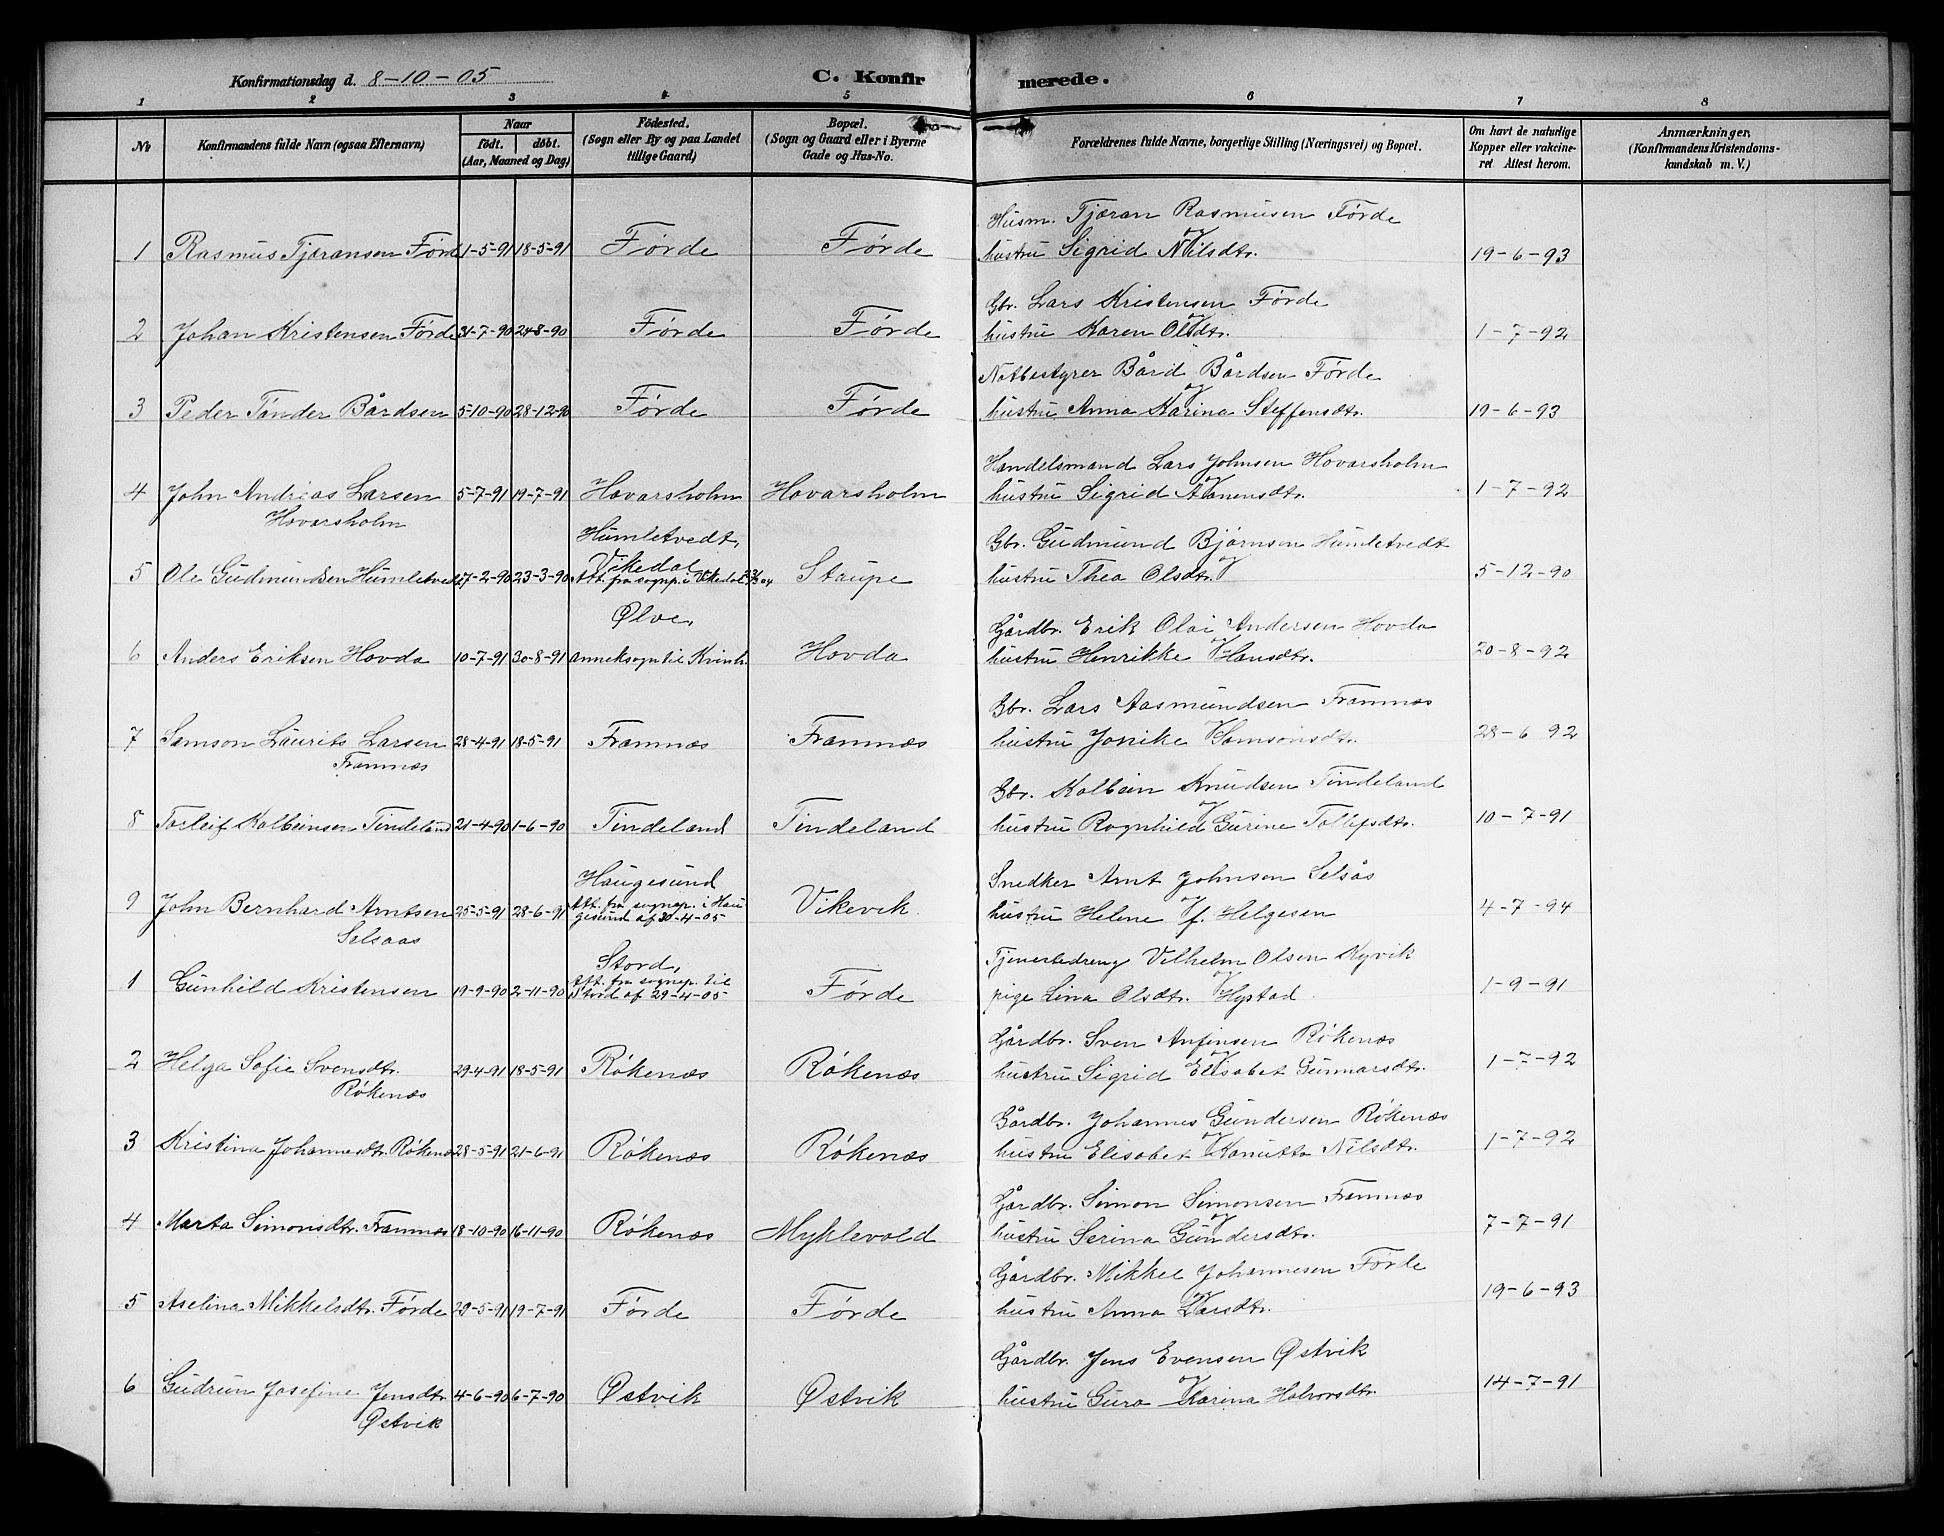 Konfirmationsdag d. 8-10-05 C. Konfirmerede.
1 2 3 4 5 6 7 8
No Konfirmandens fulde Navn (ogsaa Efternavn)
Naar
födt. döbt.
(Aar, Maaned og Dag)
Födested.
(Sogn eller By og paa Landet
tillige Gaard)
Bopæl.
(Sogn og Gaard eller i Byerne
Gade og Hus-No.
Forældrenes fulde Navne, borgerlige Stilling (Næringsvei) og Bopæl.
Om havt de naturlige
Kopper eller vakcine-
ret Attest herom.
Anmærkninger,
(Konfirmandens Kristendoms-
kundskab m. V.)
Husm. Tjæran Rasmusen Førde
1 Rasmus Tjæransen Førde 1-5-91 18-5-91 Førde Førde og hustru Sigrid Nilsdtr. 19-6-93
Gbr. Lars Kristensen Førde
2 Johan Kristensen Førde 31-7-90 24-8-90 Førde Førde og hustru Karen Olsdtr. 1-7-92
Notbestyrer Bård Bårdsen Førde
3 Peder Tønder Bårdsen 5-10-90 28-12-90 Førde Førde og hustru Anna Karina Steffensdtr. 19-6-93
Handelsmand Lars Johnsen Hovarsholm
4 John Andreas Larsen 5-7-91 19-7-91 Hovarsholm Hovarsholm og hustru Sigrid Aanensdtr. 1-7-92
Hovarsholm
Humletvedt, Gbr. Gudmund Bjørnsen Humletvedt
Vikedal
5 Ole Gudmundsen Humletvedt 17-2-90 23-3-90 Att. fra sognep. i Vikedal Staupe og hustru Thea Olsdtr. 5-12-90
Ølve, Gårdbr. Erik Olai Andersen Hovda
6 Anders Eriksen Hovda 10-7-91 30-8-91 annekssogn til Kvinh. Hovda og hustru Henrikke Hansdtr. 20-8-92
Gbr. Lars Aasmundsen Framnæs
7 Samson Laurits Larsen 28-4-91 18-5-91 Framnæs Framnæs og hustru Jonike Samsonsdtr. 28-6 92
Framnæs
Gbr. Kolbein Knudsen Tindeland
8 Torleif Kolbeinsen Tindeland 21-4-90 1-6-90 Tindeland Tindeland og hustru Ragnhild Gurine Tollefsdtr. 10-7-91
Haugesund Snedker Arnt Johnsen Selsås
9 John Bernhard Arntsen 25-5-91 28-6-91 Att. fra sognep. i Hau Vikevik og hustru Helene f. Helgesen 4-7-94
gesund af 30-4-05
Selsaas
Stord, Tjenestedreng Vilhelm Olsen Kyvik
Att. fra sognep. til
1 Gunhild Kristensen 19-9-90 2-11-90 Stord af 29-4-05 Førde og pige Lina Olsdtr. Hystad 1-9-91
Gårdbr. Sven Anfinsen Røkenæs
2 Helga Sofie Svensdtr. 29-4-91 18-5-91 Røkenæs Røkenæs og hustru Sigrid Elisabet Gunnarsdtr. 1-7-92
Røkenæs
Gårdbr. Johannes Gundersen Røkenæs
3 Kristina Johannesdtr. Røkenæs 28-5-91 21-6-91 Røkenæs Røkenæs og hustru Elisabet Kanutta Nilsdtr. 1-7-92
Gårdbr. Simon Simonsen Framnæs
4 Marta Simonsdtr. Framnæs 18-10-90 16-11-90 Røkenæs Myklevold og hustru Serina Gundersdtr. 7-7-91
Gårdbr. Mikkel Johannesen Førde
5 Aselina Mikkelsdtr. Førde 29-5-91 19-7-91 Førde Førde og hustru Anna Larsdtr. 19-6-93
Gårdbr. Jens Evensen Østvik
6 Gudrun Josefine Jensdtr 4-6-90 6-7-90 Østvik Østvik og hustru Gura Karina Halvorsdtr. 14-7-91
Østvik